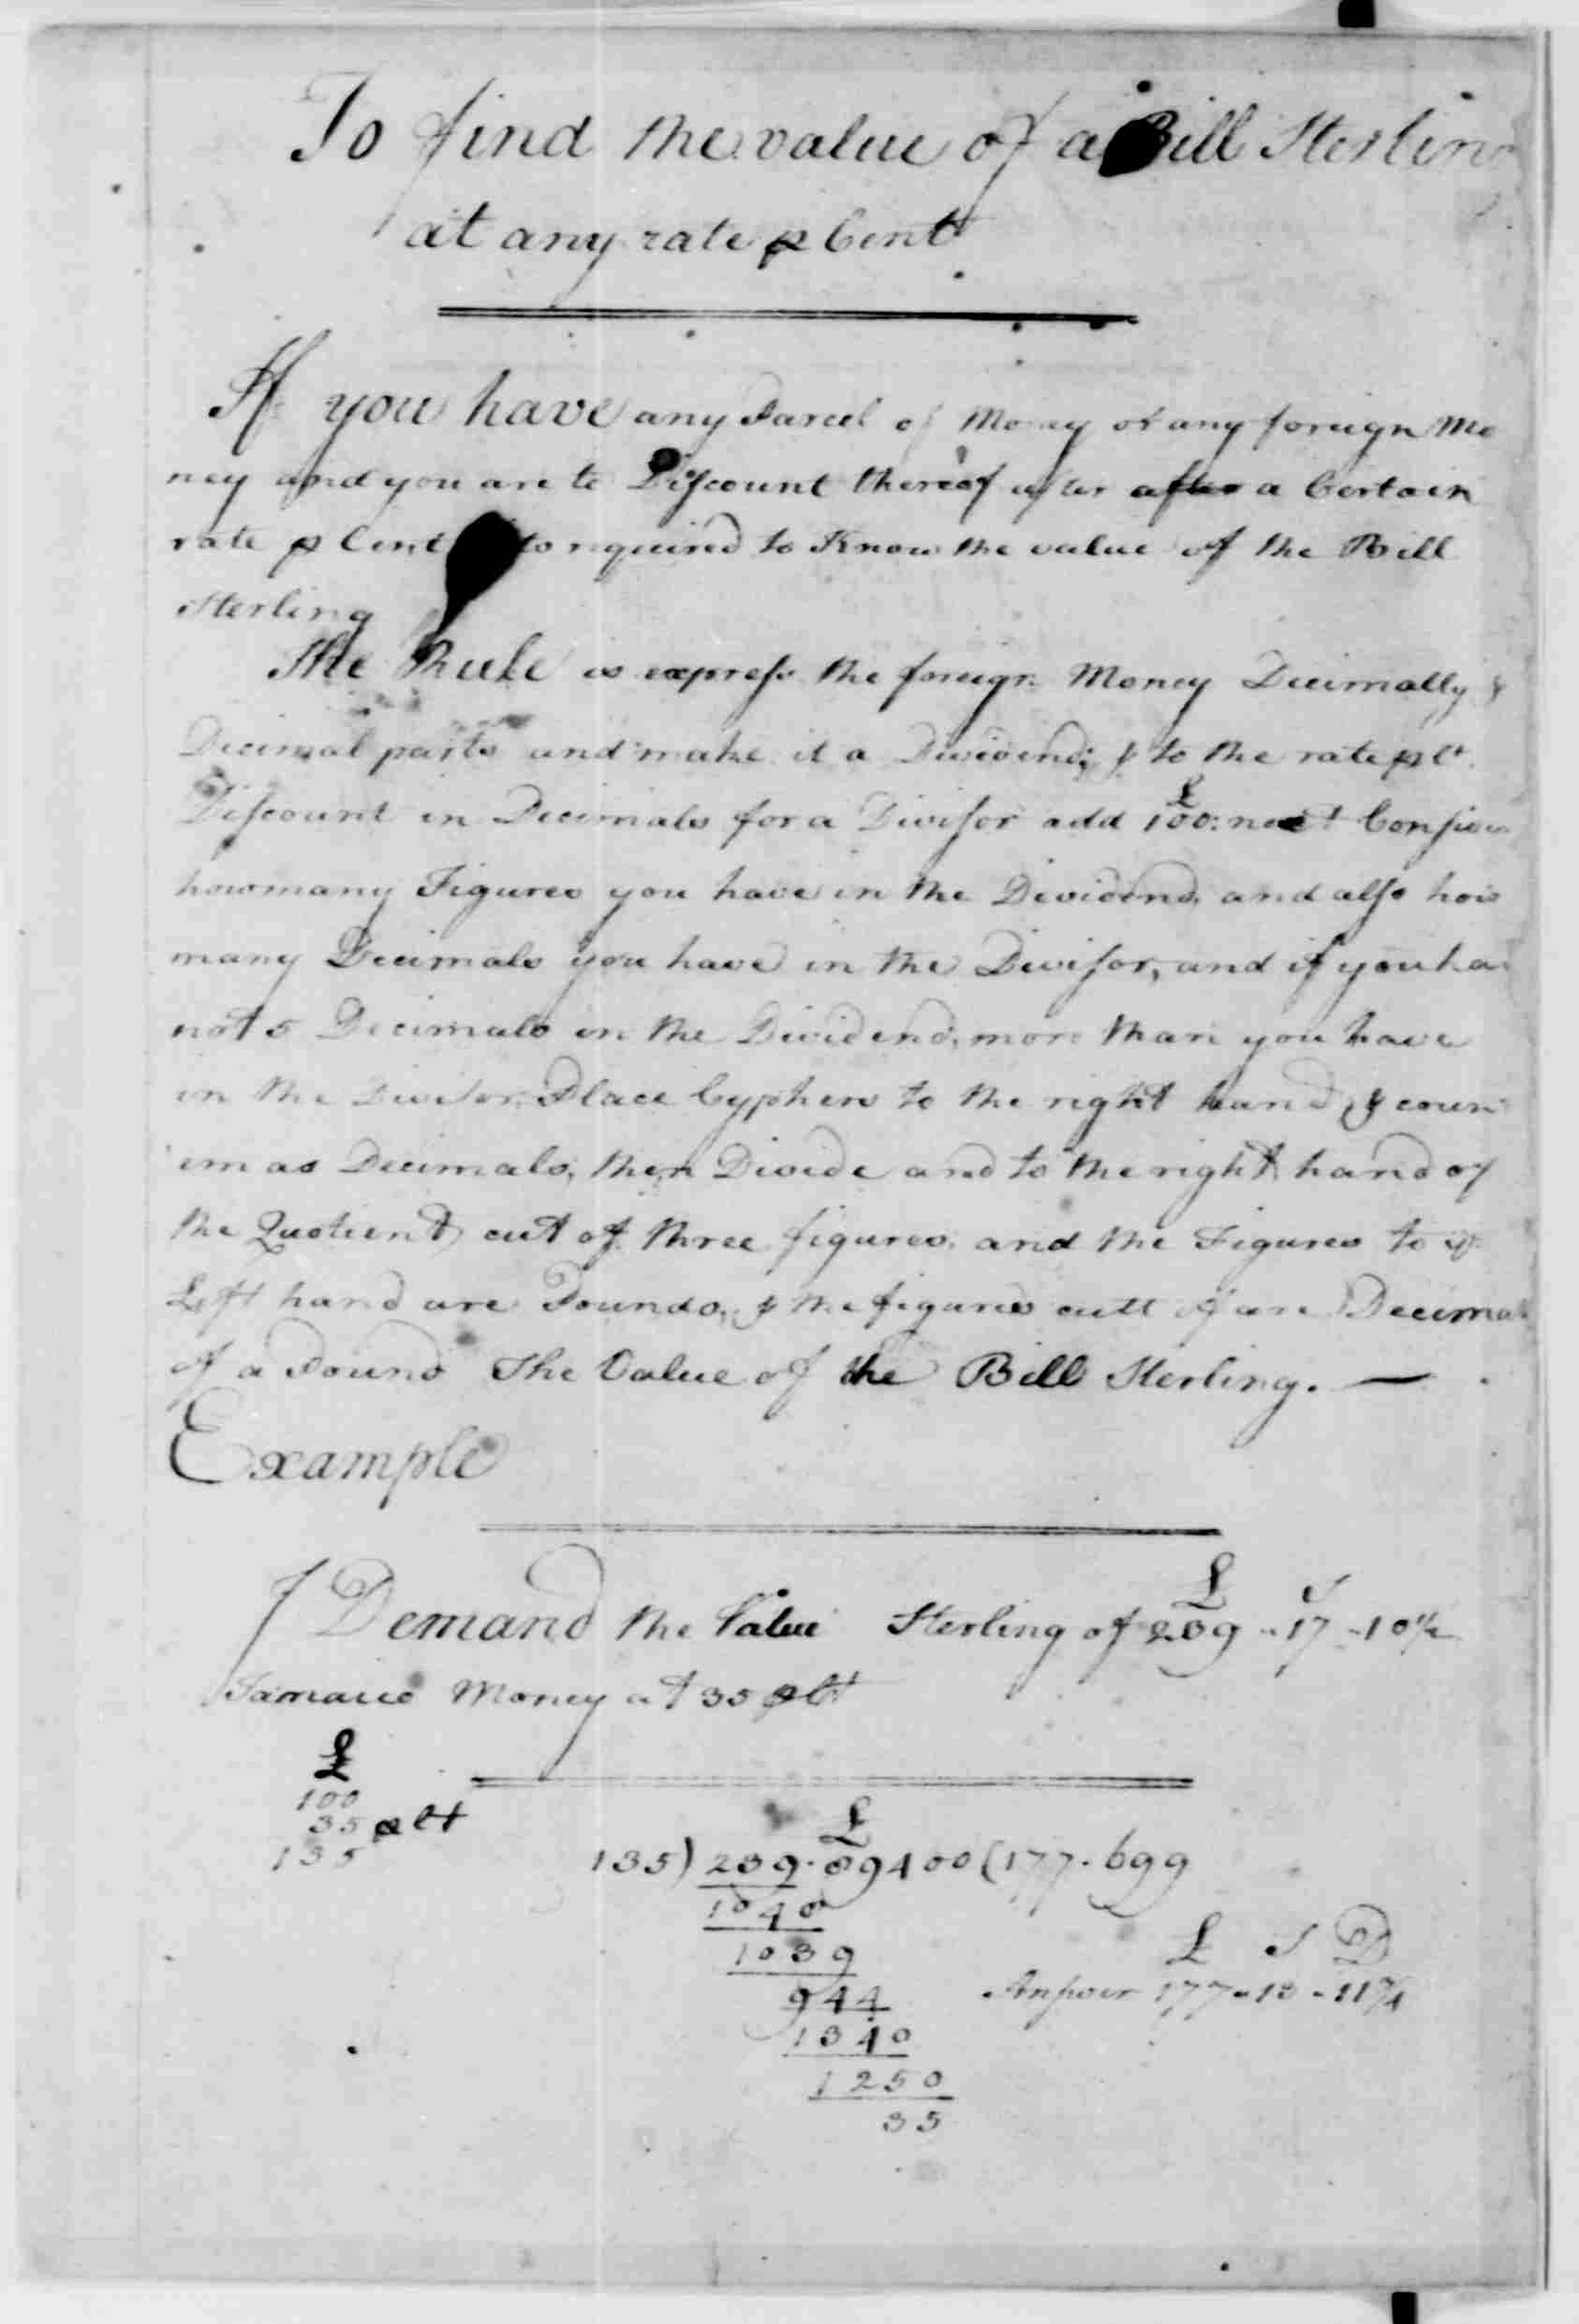 To find the value of a Bill Sterling
at any rate ⅌ Cent
If you have any Parcel of Money or any foreign Mo
ney and you are to Discount thereof after after a Certain
rate ⅌ Cent to required to Know the value of the Bill
Sterling
The Rule is express the foreign Money Decimally &
Decimal parts and make it a Dividend; & to the rate ⅌ Ct.
Discount in Decimals for a Divisor add £100: next
how many Figures you have in the Dividend, and also how
many Decimals you have in the Divisor, and if you ha
not 5 Decimals in the Dividend, more than you have
in the Divisor, Place Cyphers to the right hand & coun
em as Decimals, then Divide and to the right hand of
the Quotient, cut of three figures, and the Figures to ye
Left hand are Pounds, & the figures cutt of are Decimal
of a Pound The Value of the Bill Sterling. —
Example
£ S
I Demand the Value Sterling of 239 " 17 " 10½
Jamaica Money at 35 ⅌ Ct
£
100
35 ⅌ Ct
135
£
135) 239.89400 (177.699
1048
1039
944
1340
1250
35
£ S D
Answer 177 " 13 " 11¾